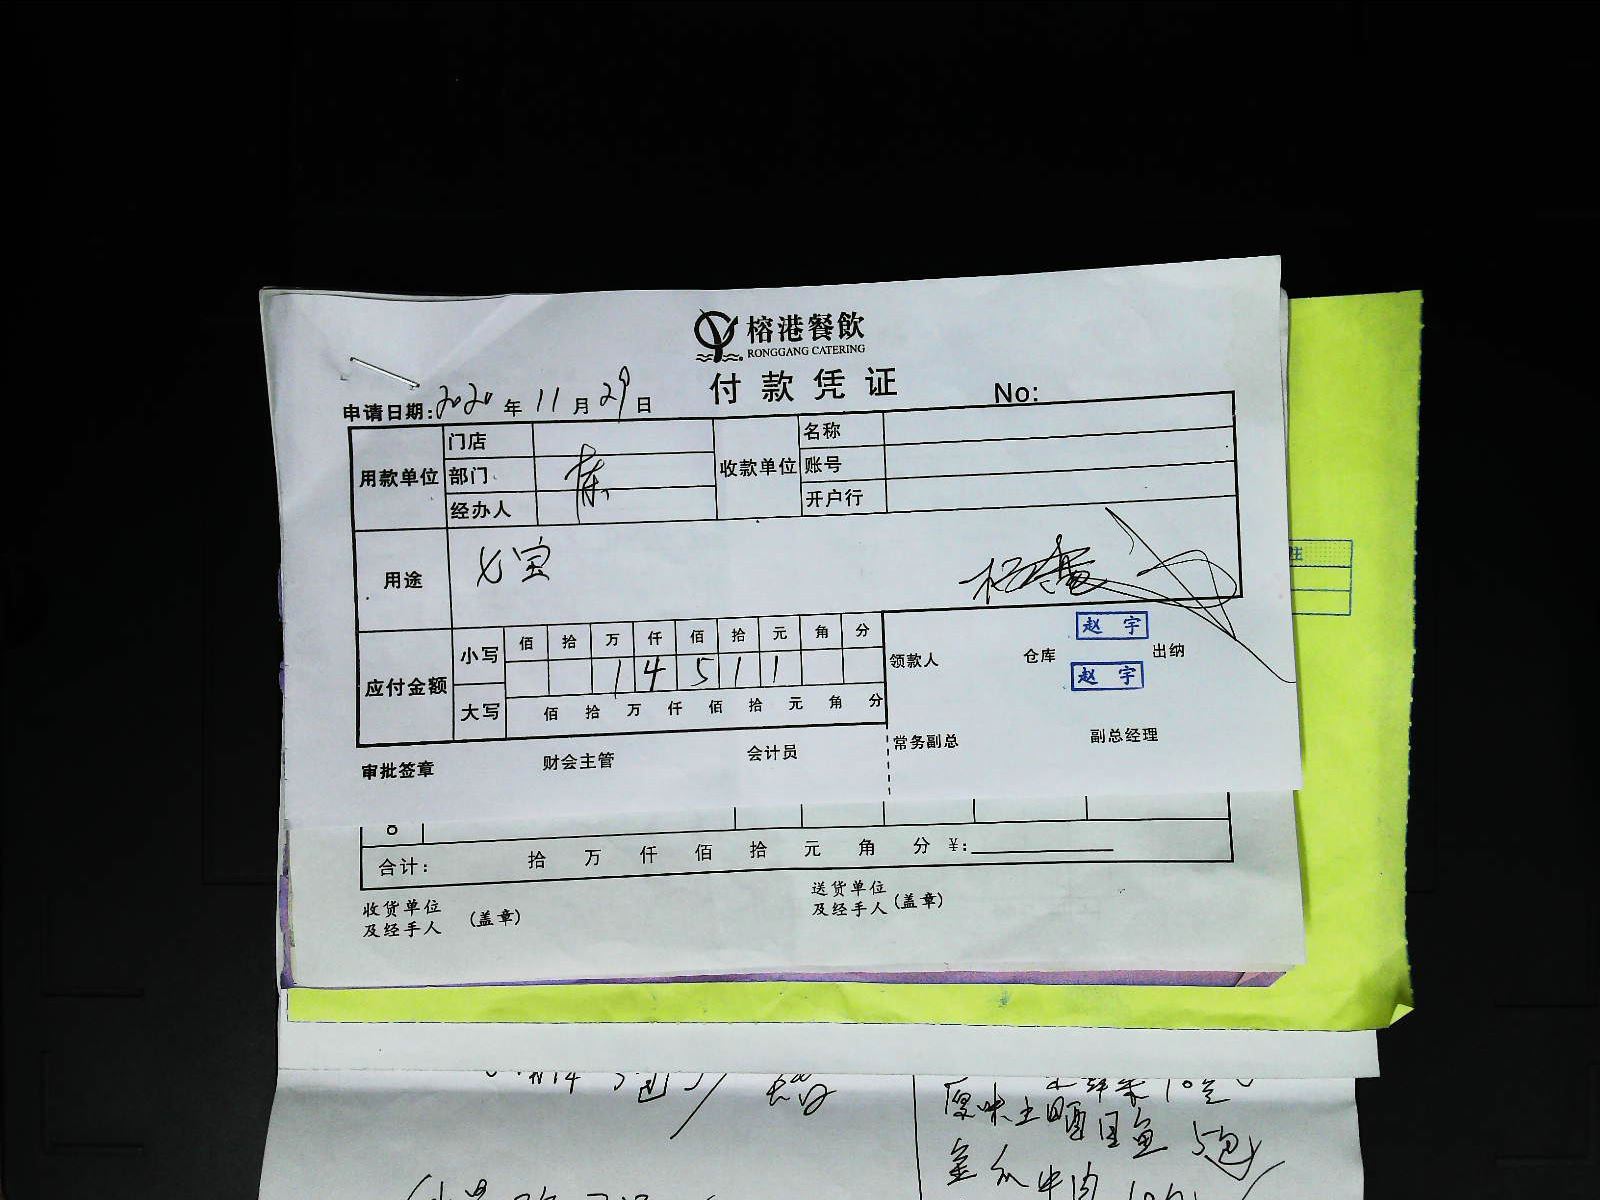 榕港餐飲
RONGGANG CATERING
付款凭证
No:
申请日期: 2020 年 11 月 29 日
用款单位 门店 收款单位 名称
部门 账号
经办人 陈 开户行
用途 七宝
应付金额 小写 佰 拾 万 仟 佰 拾 元 角 分
1 4 5 1 1
大写 佰 拾 万 仟 佰 拾 元 角 分
领款人 仓库 赵宇 出纳
赵宇
审批签章 财会主管 会计员 常务副总 副总经理
8
合计: 拾 万 仟 佰 拾 元 角 分 ¥:
收货单位
及经手人 (盖章)
送货单位
及经手人 (盖章)
5包
牛肉